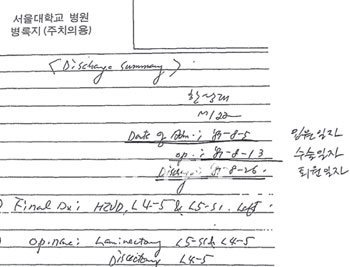 서울대학교 병원
병록지 (주치의용)
< Discharge Summary >
M/22
Date of Adm : 89-8-5 입원일자
op. : 89-8-13 수술일자
Discharge : 89-8-26. 퇴원일자
) Final Dx : HIVD, L4-5 & L5-S1. Left.
) Op. name : Laminectomy L5-S1 & L4-5
Discectomy L4-5